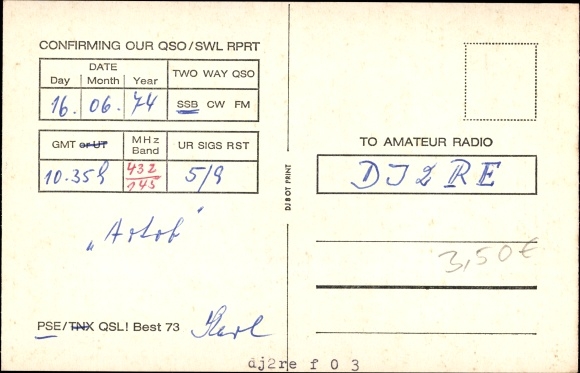 CONFIRMING OUR QSO/SWL RPRT
DATE
Day Month Year
TWO WAY QSO
16. 06. 74
SSB CW FM
GMT or UT
MHz Band
UR SIGS RST
10.35h
432/145
5/9
„Artob“
PSE/TNX QSL! Best 73 Karl
DJ8OT PRINT
TO AMATEUR RADIO
DJ2RE
3,50€
dj2re f 0 3